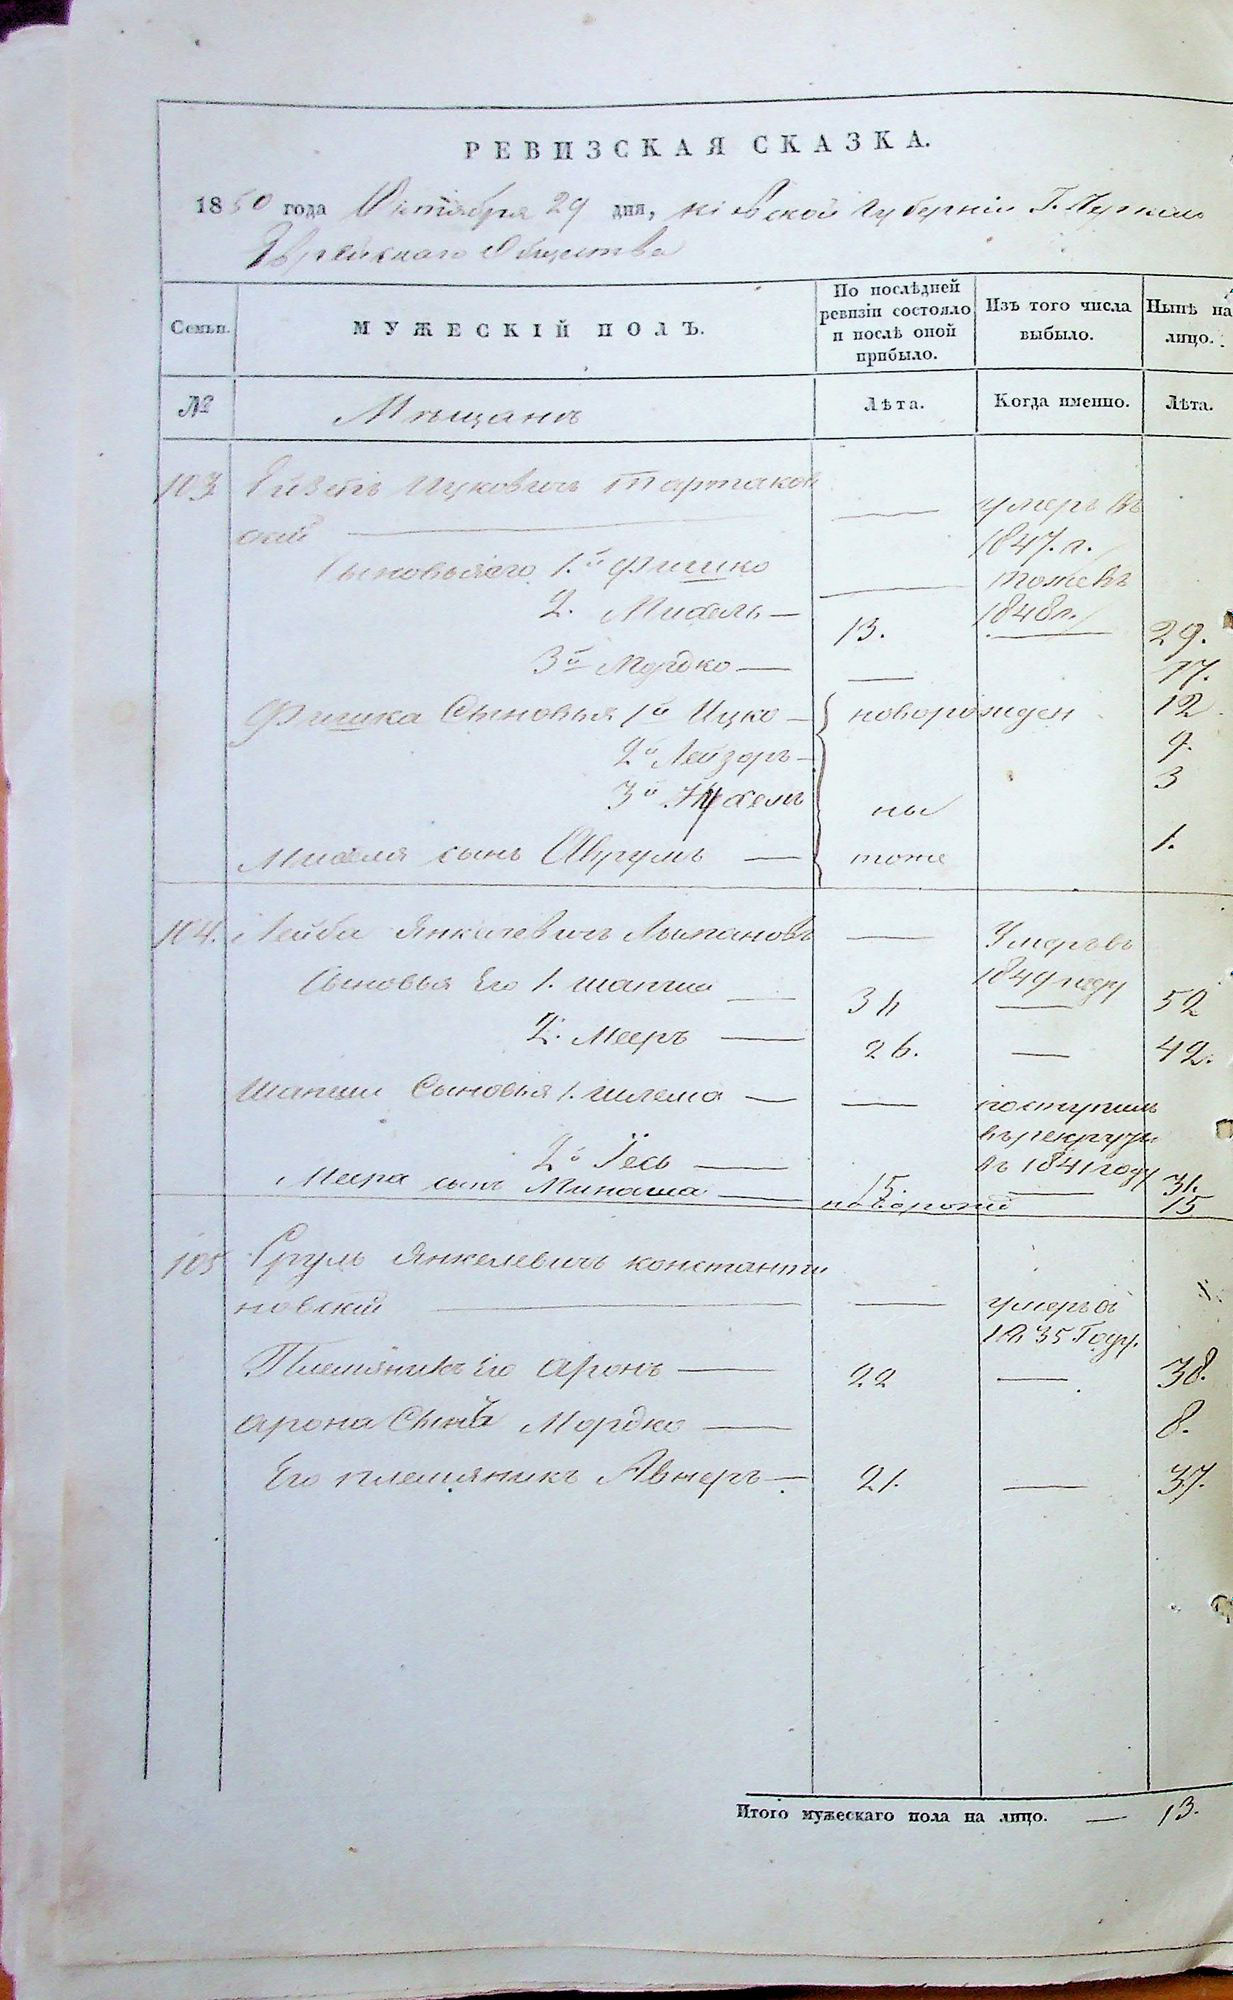 РЕВИЗСКАЯ СКАЗКА.
1850 года Октября 29 дня, Кіевской Губерніи Г.
Еврейскаго Общества
Семьи.
МУЖЕСКІЙ ПОЛЪ.
По послѣдней
ревизіи состояло
и послѣ оной
прибыло.
Изъ того числа
выбыло.
Нынѣ на
лицо.
№
Мѣщанъ
Лѣта.
Когда именно.
Лѣта.
103 Ицковичъ Тартаков
скій — — умеръ въ
1847. г.
Сыновья его 1.й Фишко — тоже въ
1848 г.
2. Михель — 13. — 29.
3й Мордко — — 17.
Фишка Сыновья 1й Ицко — новорожден 12
2й Лейзоръ — 9.
3й 3
ны
Михеля сынъ Аврумъ — тоже 1.
104. Лейба Янкелевичъ — Умеръ въ
1849 году
Сыновья Его 1. Шапши — 36 — 52
2. Мееръ — 26. — 42.
Шапши Сыновья 1. Шлема — — поступилъ
въ рекруты
въ 1841 году
2й — 15. — 31.
Меера сынъ Минаша — новорожд 15
105 Сруль Янкелевичъ Константи
новскій — — умеръ в
1835 Году.
Племяникъ Его Аронъ — 22 — 38.
Арона Сынъ Мордко — 8.
Его племяникъ Авнеръ — 21. — 37.
Итого мужескаго пола на лицо. — 13.